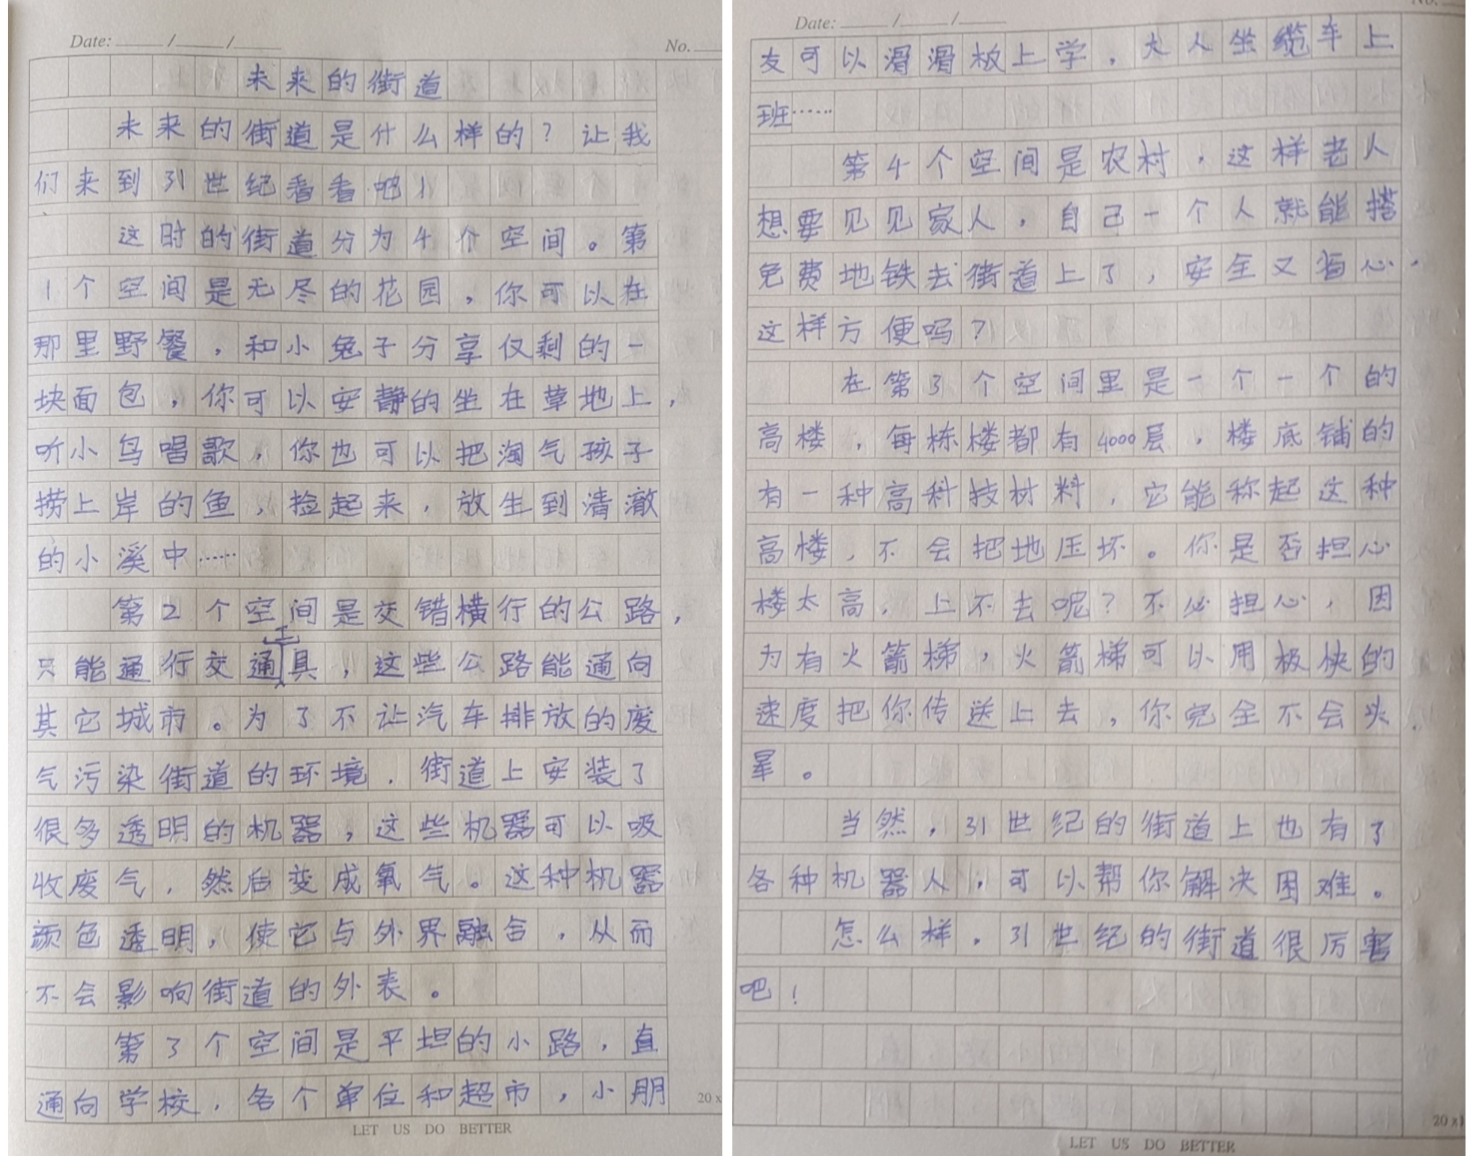 Date: ___/___/___
No.
未来的街道
未来的街道是什么样的？让我
们来到31世纪看看吧！
这时的街道分为4个空间。第
1个空间是无尽的花园，你可以在
那里野餐，和小兔子分享仅剩的一
块面包，你可以安静的坐在草地上，
听小鸟唱歌，你也可以把淘气孩子
捞上岸的鱼，捡起来，放生到清澈
的小溪中……
第2个空间是交错横行的公路，
只能通行交通工具，这些公路能通向
其它城市。为了不让汽车排放的废
气污染街道的环境，街道上安装了
很多透明的机器，这些机器可以吸
收废气，然后变成氧气。这种机器
颜色透明，使它与外界融合，从而
不会影响街道的外表。
第3个空间是平坦的小路，直
通向学校，各个单位和超市，小朋
20 x
LET US DO BETTER
Date: ___/___/___
No.
友可以滑滑板上学，大人坐缆车上
班……
第4个空间是农村，这样老人
想要见见家人，自己一个人就能搭
免费地铁去街道上了，安全又省心，
这样方便吗？
在第3个空间里是一个一个的
高楼，每栋楼都有4000层，楼底铺的
有一种高科技材料，它能称起这种
高楼，不会把地压坏。你是否担心
楼太高，上不去呢？不必担心，因
为有火箭梯，火箭梯可以用极快的
速度把你传送上去，你完全不会头
晕。
当然，31世纪的街道上也有了
各种机器人，可以帮你解决困难。
怎么样，31世纪的街道很厉害
吧！
20 x
LET US DO BETTER